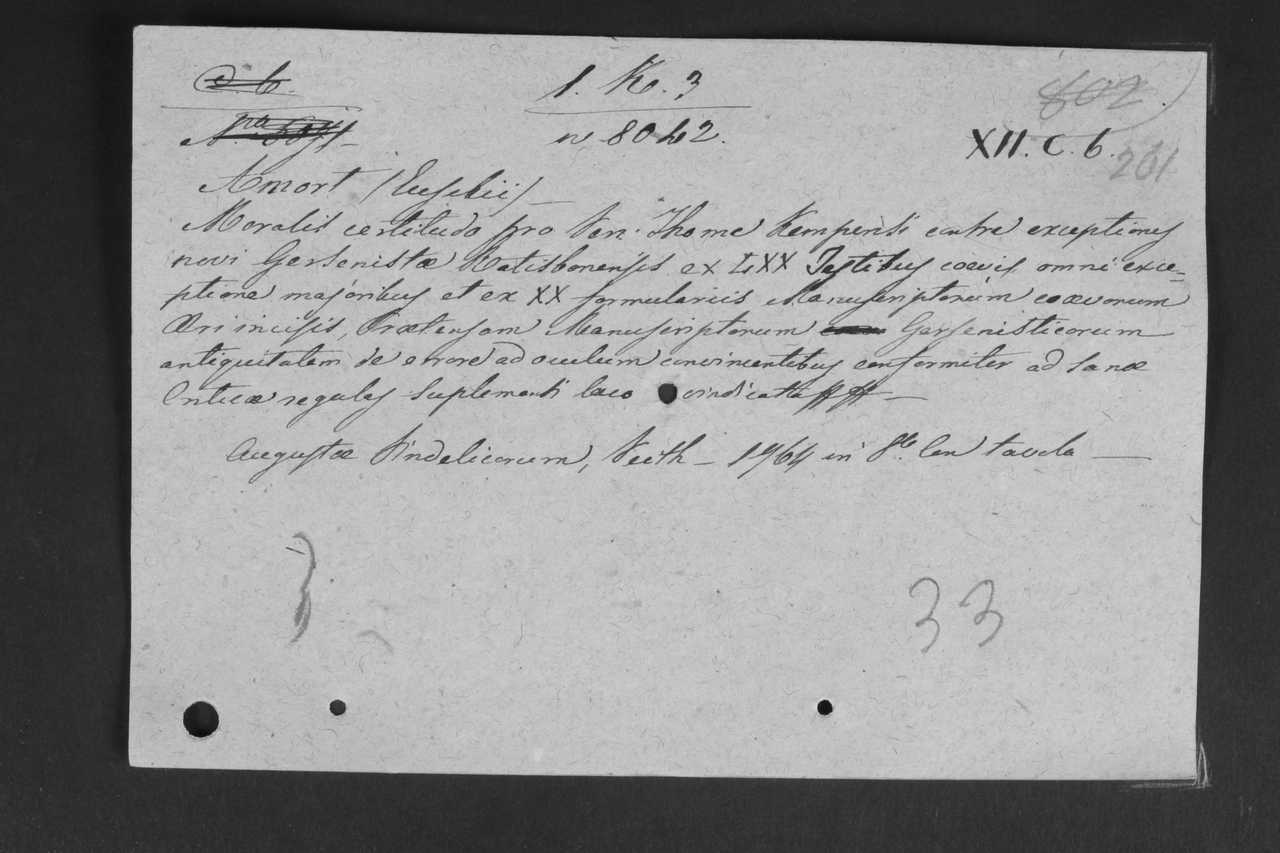 1. K. 3
802
n 8042.
XII. C. b.
261
Amort (Eusebii)
Moralis certitudo pro Ven. Thome Kempensi contra exceptiones
novi Gersenistæ Ratisbonensis ex LXX Testibus coævis omni exce-
ptione majoribus et ex XX formulariis Manuscriptorum coævorum
Æri incisis, Prætensam Manuscriptorum Gersenisticorum
antiquitatem de errore ad oculum convincentibus conformiter ad sanæ
Criticæ regulas suplementi loco vindicata
Augustæ Vindelicorum, Veith - 1764 in 8º Con tavola
3 3